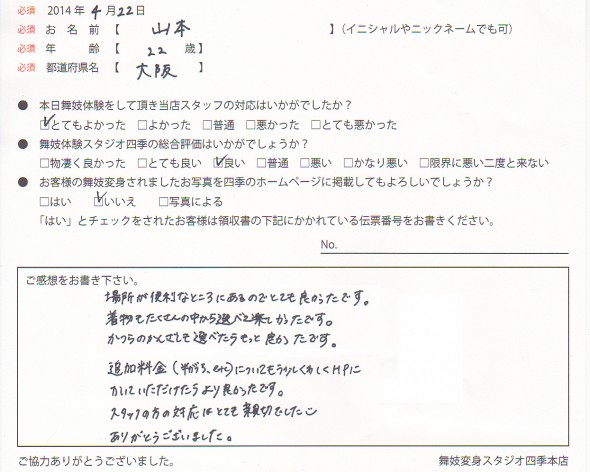 必須 2014年4月22日
必須 お名前【 山本 】(イニシャルやニックネームでも可)
必須 年齢【 22 歳】
必須 都道府県名【 大阪 】
● 本日舞妓体験をして頂き当店スタッフの対応はいかがでしたか？
☑とてもよかった □よかった □普通 □悪かった □とても悪かった
● 舞妓体験スタジオ四季の総合評価はいかがでしょうか？
□物凄く良かった □とても良い ☑良い □普通 □悪い □かなり悪い □限界に悪い二度と来ない
● お客様の舞妓変身されましたお写真を四季のホームページに掲載してもよろしいでしょうか？
□はい ☑いいえ □写真による
「はい」とチェックをされたお客様は領収書の下記にかかれている伝票番号をお書きください。
No.
ご感想をお書き下さい。
場所が便利なところにあるのでとても良かったです。
着物もたくさんの中から選べて楽しかったです。
かつらのかんざしも選べたらもっと良かったです。
追加料金(半がつら、etc)についてもう少しくわしくHPに
かいていただけたらより良かったです。
スタッフの方の対応はとても親切でした
ありがとうございました。
ご協力ありがとうございました。
舞妓変身スタジオ四季本店